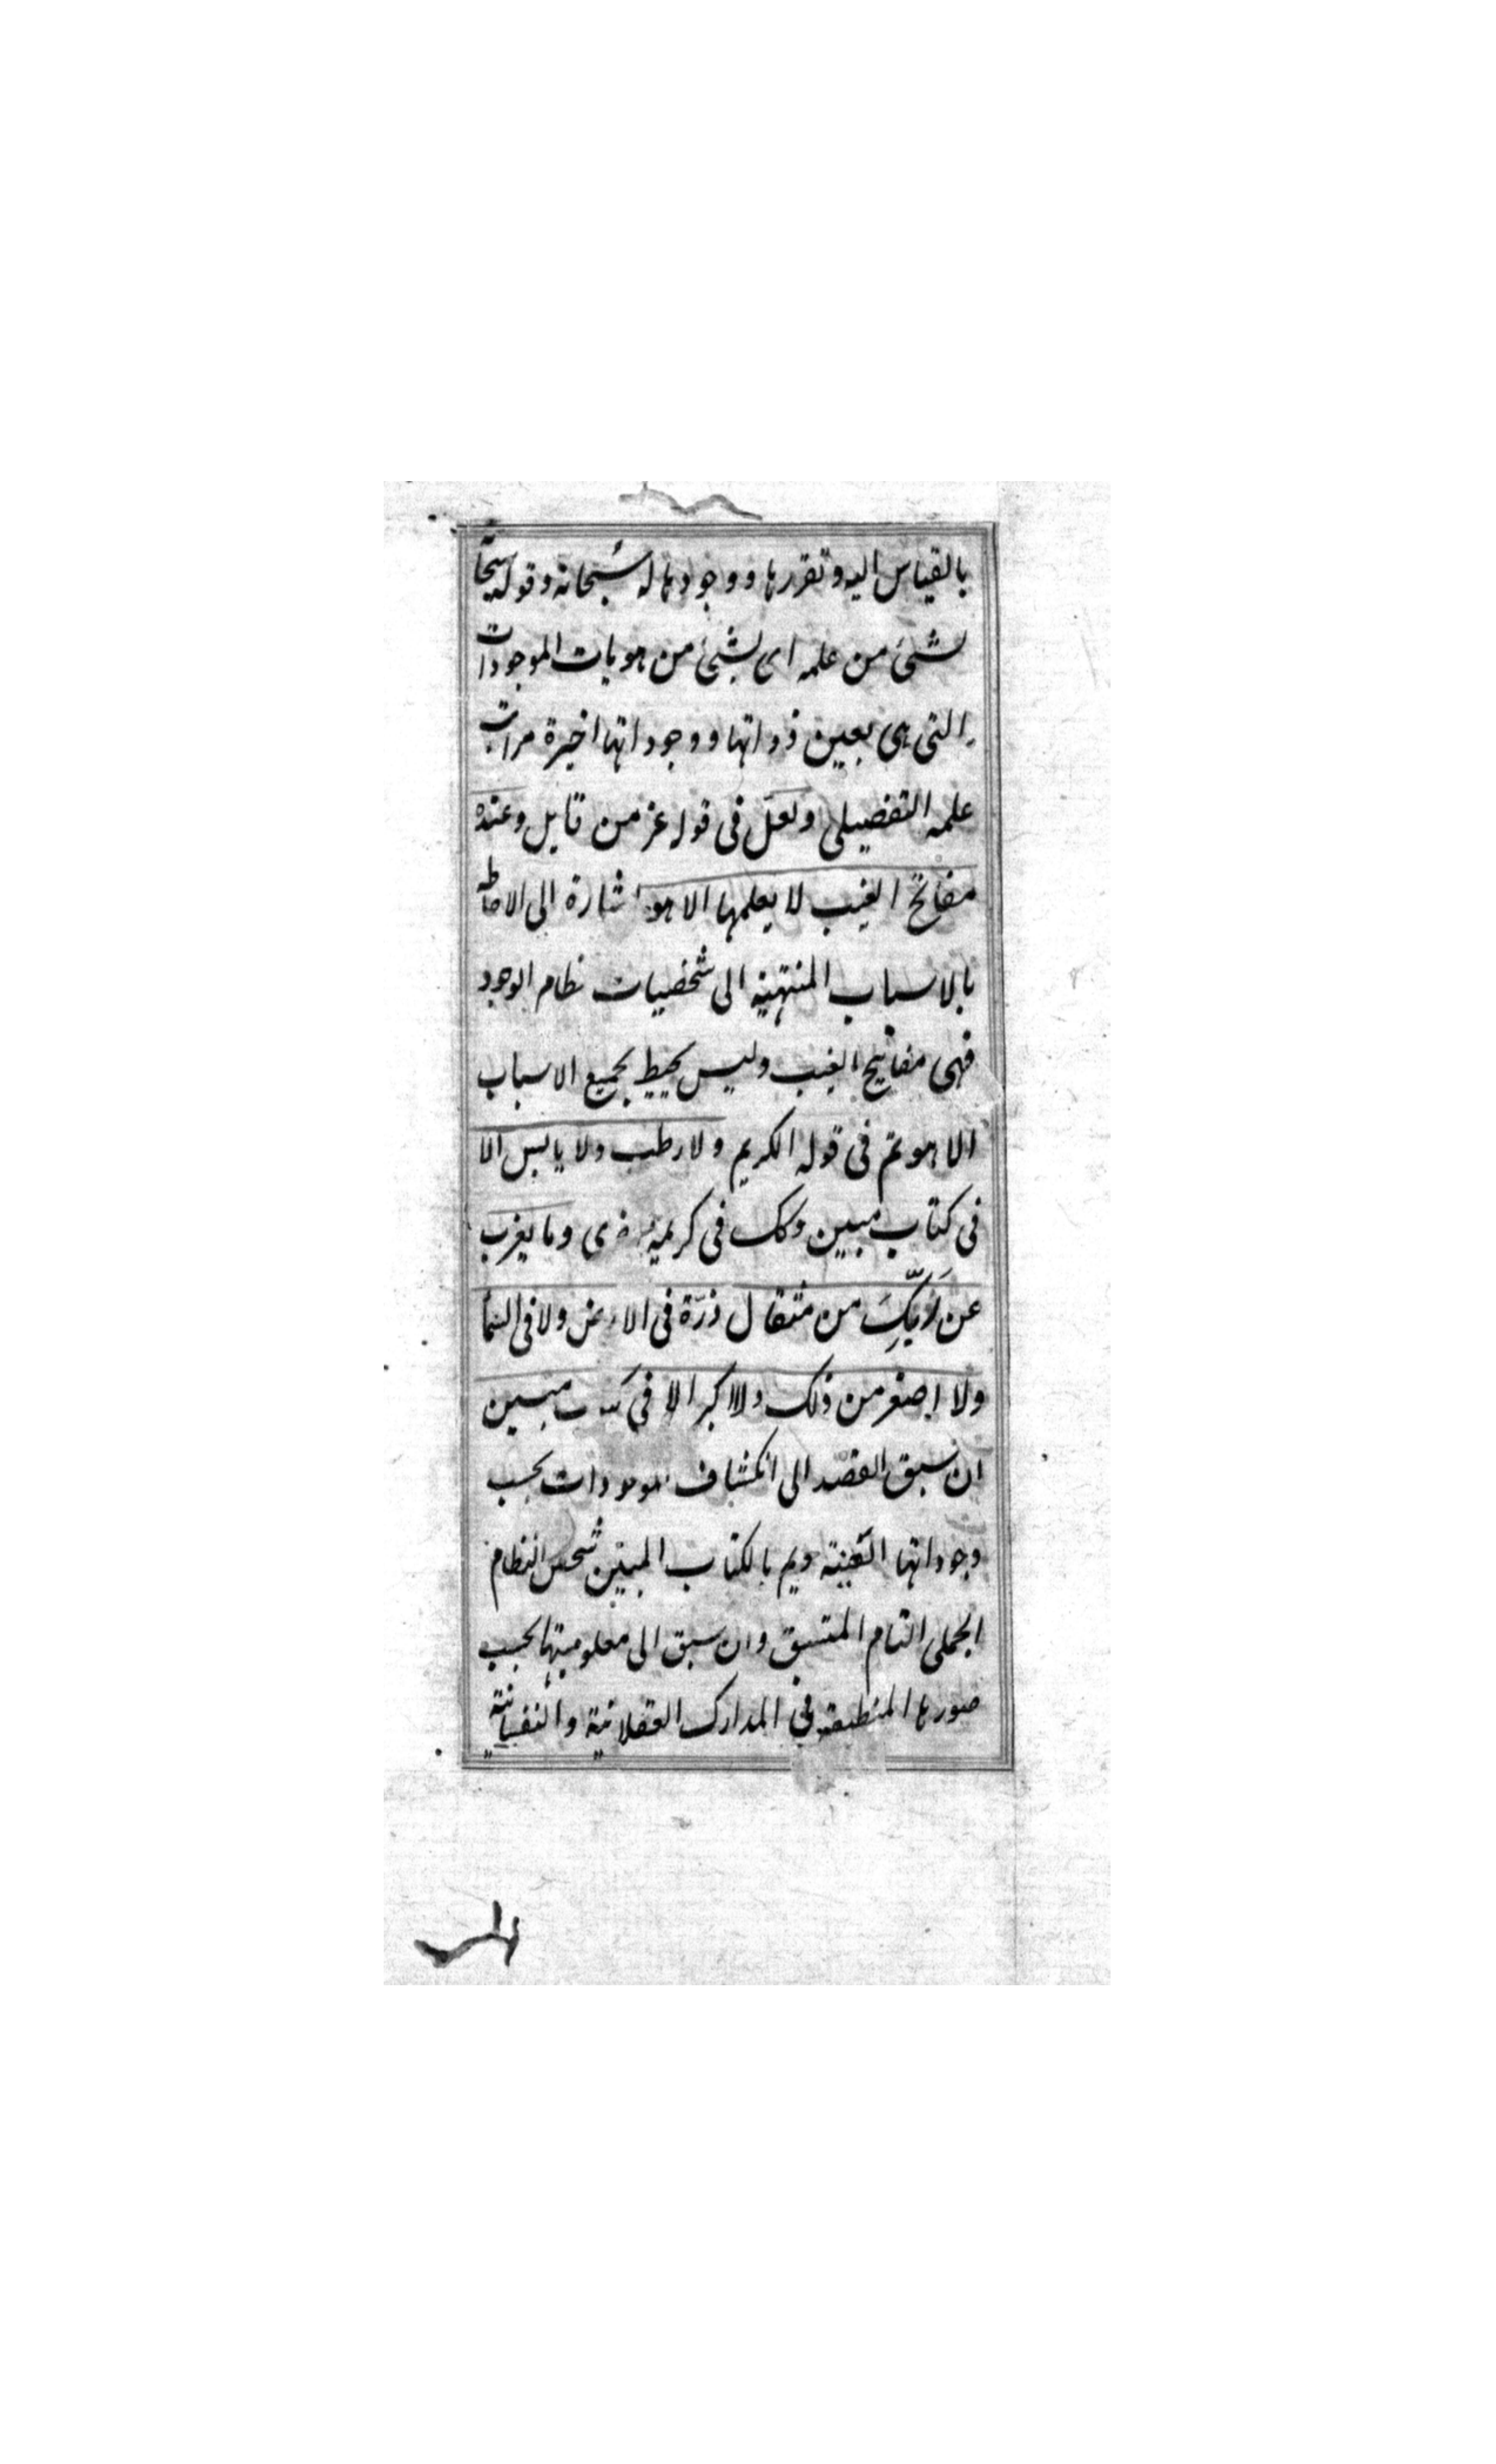 بالقياس اليه وتقررها ووجودها له سبحانه وقوله سبحا
بشئ من علمه اى بشئ من هويات الموجودات
التى هى بعين ذواتها ووجوداتها اخيرة مراتب
علمه التفصيلى ولعلّ فى قوله عز من قايل وعنده
مفاتح الغيب لا يعلمها الا هو اشارة الى الاحاطه
بالاسباب المنتهية الى شخصيات نظام الوجود
فهى مفاتيح الغيب وليس يحيط بجميع الاسباب
الا هو ثم فى قوله الكريم ولا رطب ولا يابس الا
فى كتاب مبين وكك فى كريمة اخرى وما يعزب
عن رَبِّكَ من مثقال ذرّة فى الارض ولا فى السمآ
ولا اصغر من ذلك ولا اكبر الا فى كتاب مبين
ان سبق القصد الى انكشاف الموجودات بحسب
وجوداتها العينية ويم بالكتاب المبين شخص النظام
الجملى التام المتسق وان سبق الى معلوميتها بحسب
صورها المنطبعة فى المدارك العقلانية والنفسانية